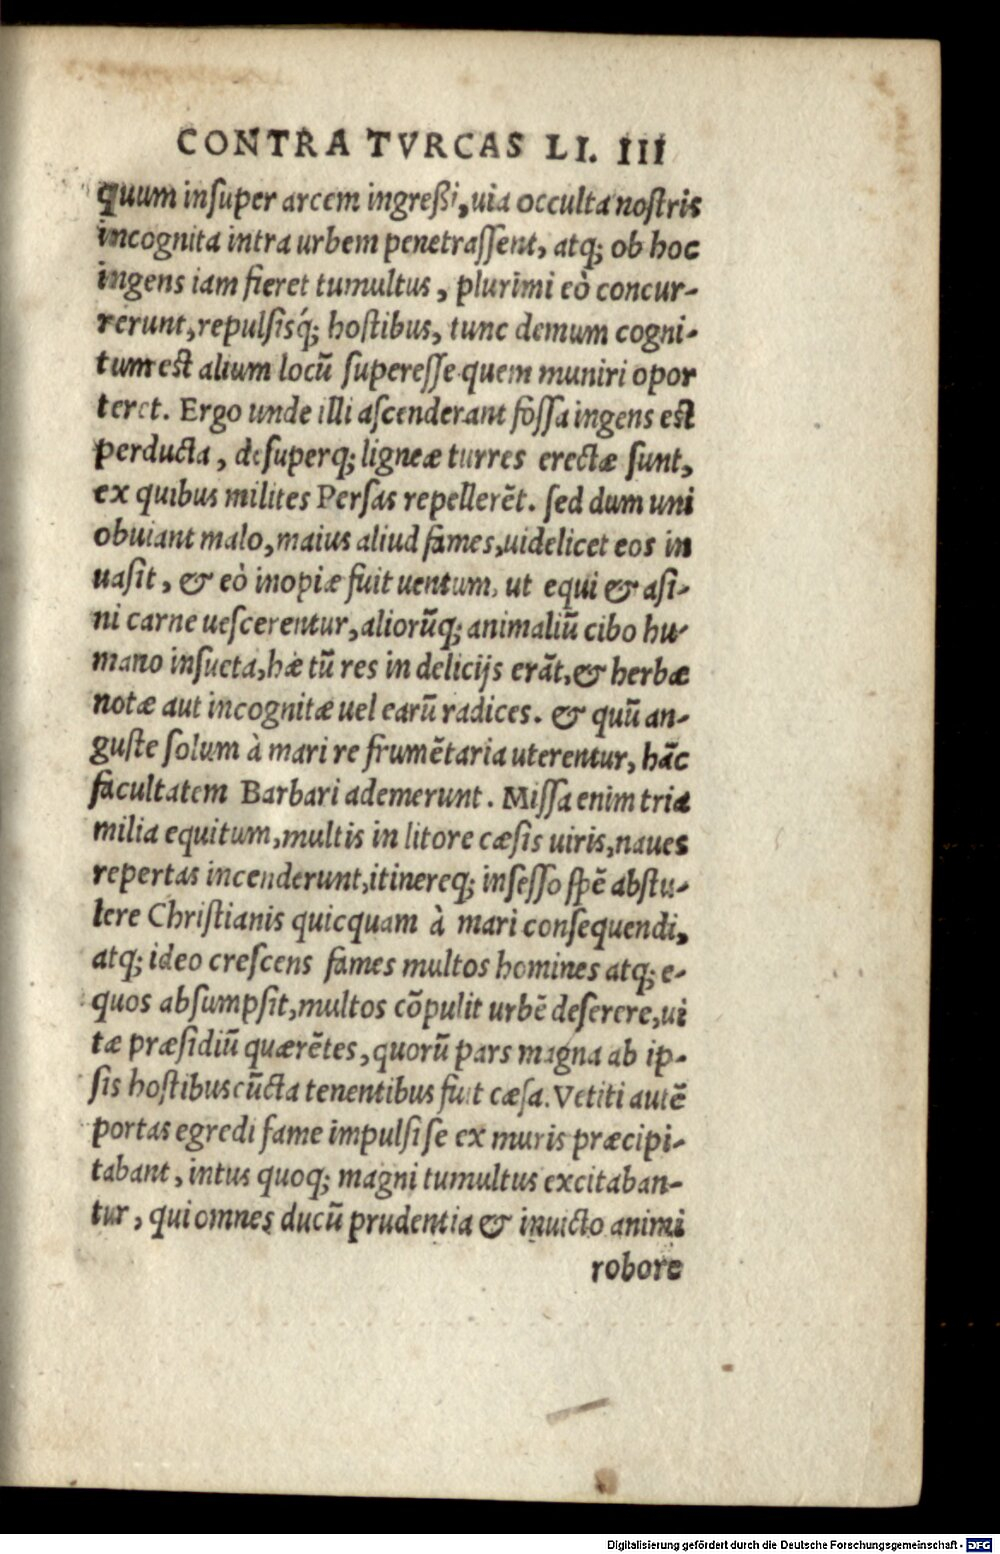 CONTRA TVRCAS LI. III
quum insuper arcem ingreßi, uia occulta nostris
incognita intra urbem penetrassent, atq; ob hoc
ingens iam fieret tumultus, plurimi eò concur-
rerunt, repulsisq́; hostibus, tunc demum cogni-
tum est alium locū superesse quem muniri opor
teret. Ergo unde illi ascenderant fossa ingens est
perducta, desuperq; ligneæ turres erectæ sunt,
ex quibus milites Persas repellerēt. sed dum uni
obuiant malo, maius aliud fames, uidelicet eos in
uasit, & eò inopiæ fuit uentum, ut equi & asi-
ni carne uescerentur, aliorūq; animaliū cibo hu-
mano insueta, hæ tū res in delicijs erāt, & herbæ
notæ aut incognitæ uel earū radices. & quū an-
guste solum à mari re frumētaria uterentur, hāc
facultatem Barbari ademerunt. Missa enim tria
milia equitum, multis in litore cæsis uiris, naues
repertas incenderunt, itinereq; insesso spē abstu-
lere Christianis quicquam à mari consequendi,
atq; ideo crescens fames multos homines atq; e-
quos absumpsit, multos cōpulit urbē deserere, ui
tæ præsidiū quærētes, quorū pars magna ab ip-
sis hostibus cūcta tenentibus fuit cæsa. Vetiti autē
portas egredi fame impulsi se ex muris præcipi-
tabant, intus quoq; magni tumultus excitaban-
tur, qui omnes ducū prudentia & inuicto animi
robore
Digitalisierung gefördert durch die Deutsche Forschungsgemeinschaft - DFG